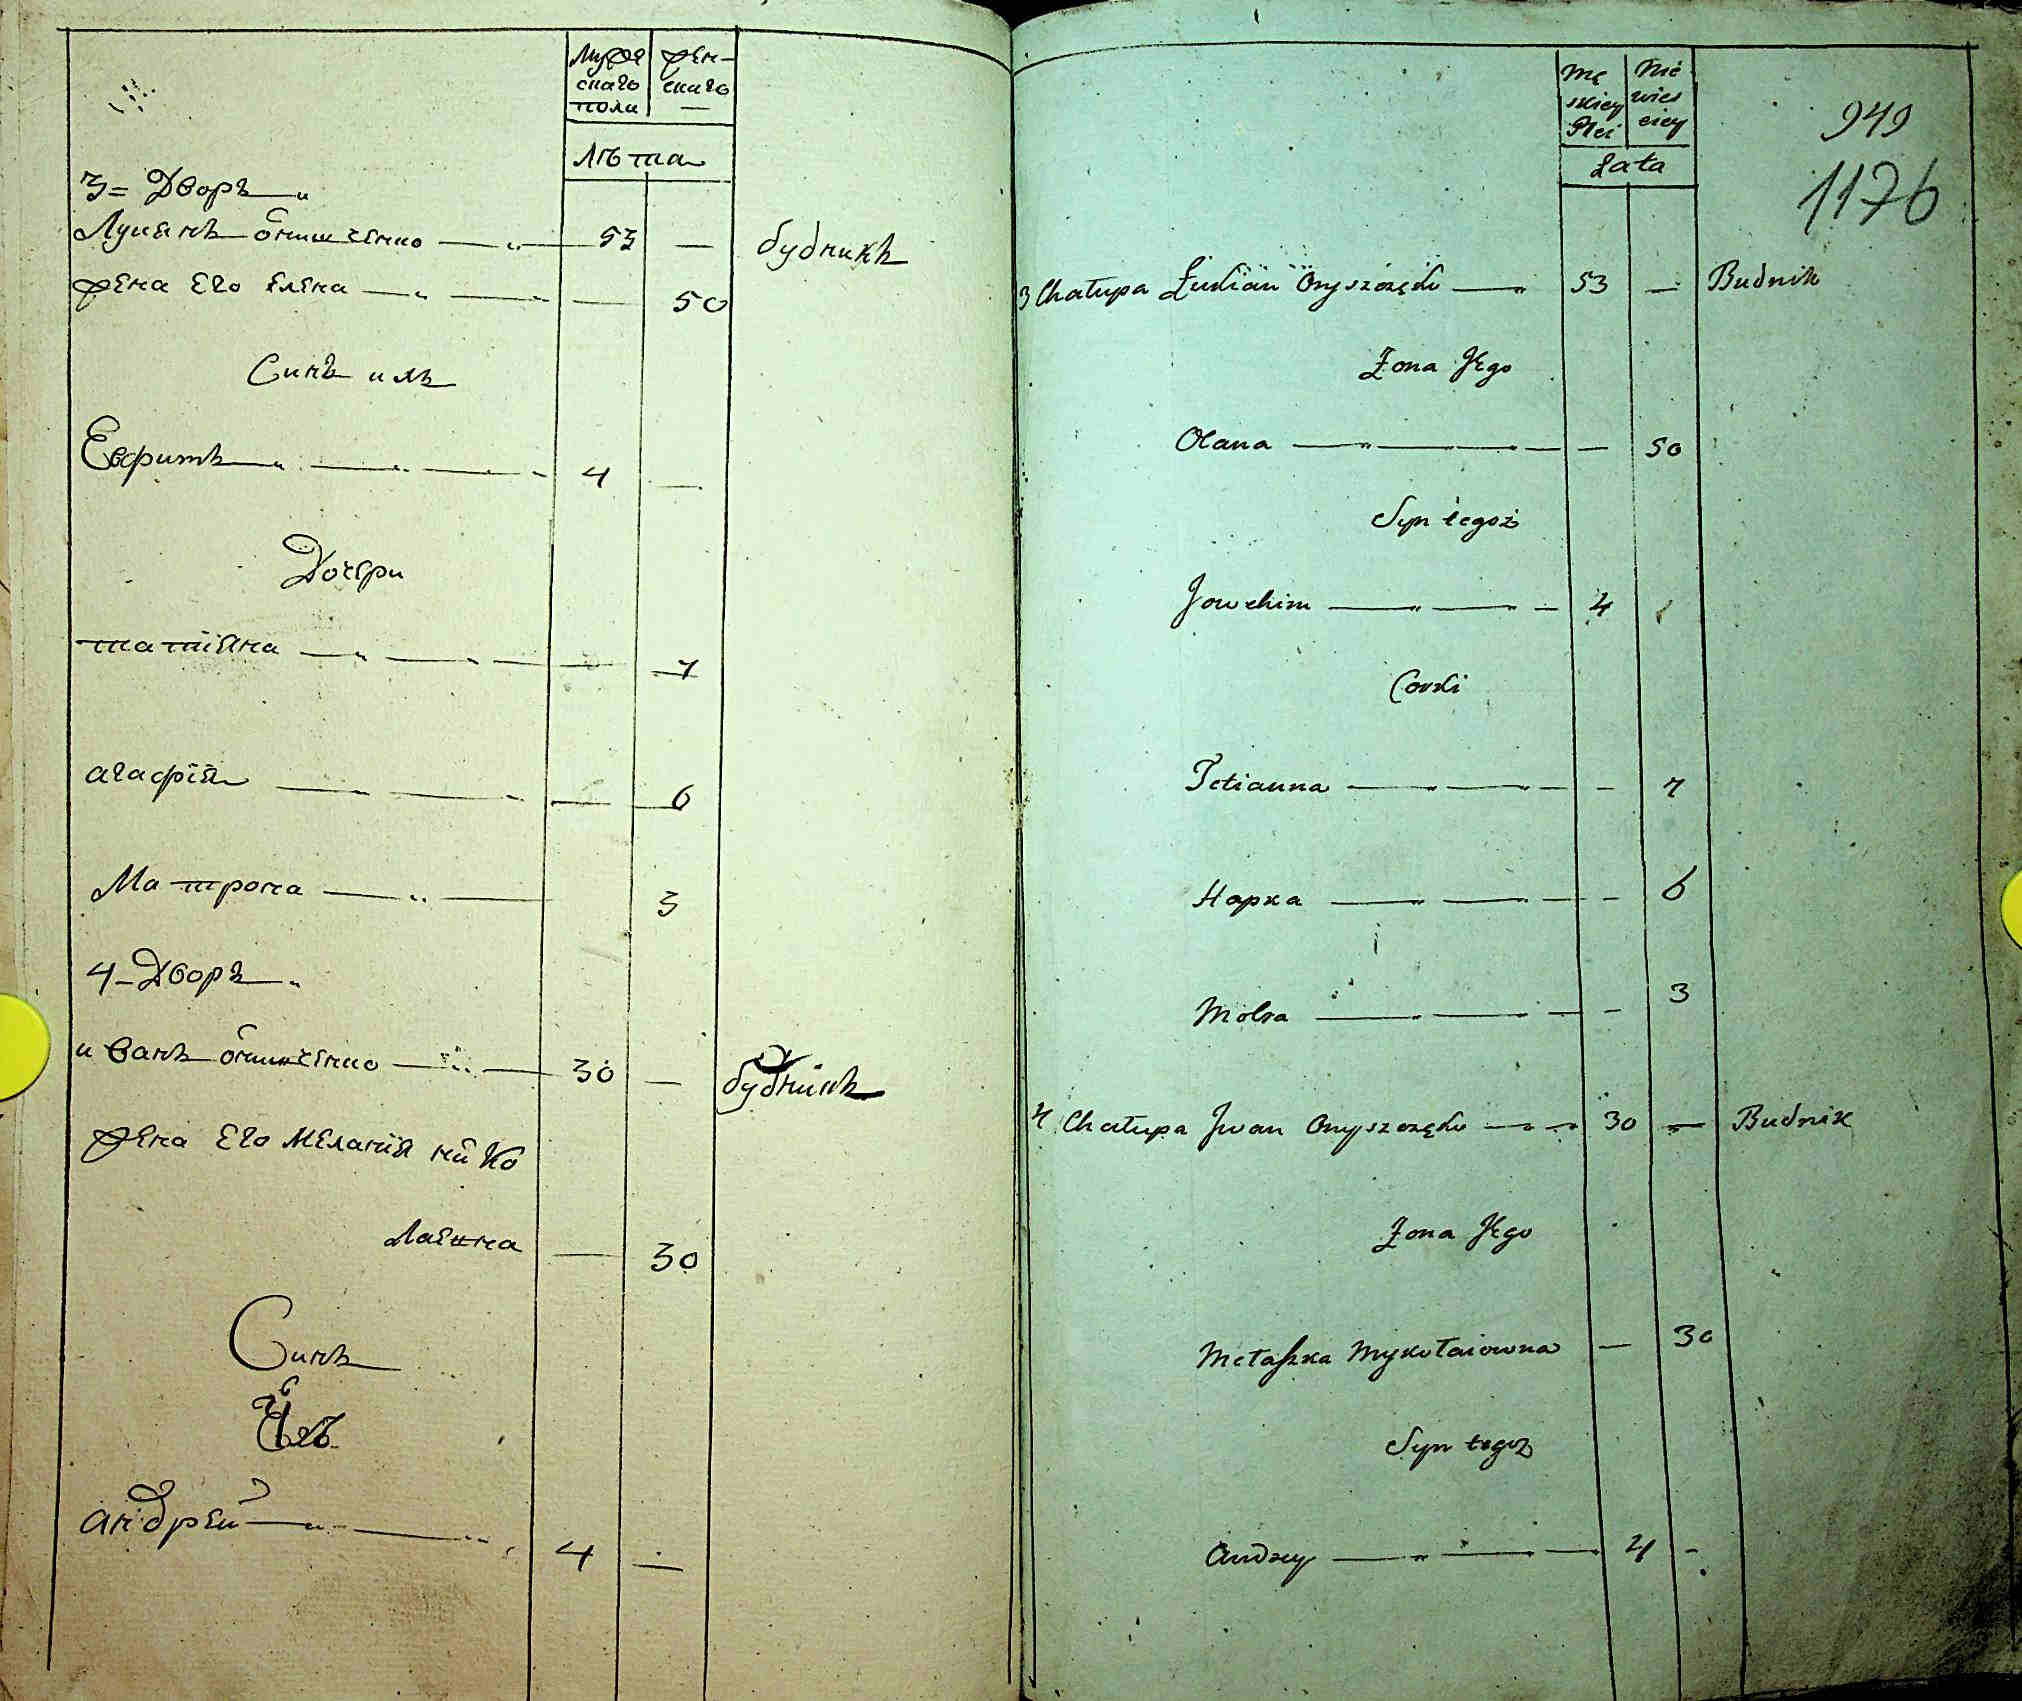 Мужескаго пола
женскаго
Лѣта
3= Дворъ
Лукянъ Онищенко 53 — будникъ
жена Его Елена 50
Синъ ихъ
Евфимъ 4 —
Дочери
татіяна 7
агафія 6
Матрона 3
4 - Дворъ
иванъ Онищенко 30 — будникъ
жена Его Меланія нико
лаевна — 30
Синъ
Ихъ
андрей 4 —
Męskiey Płci
Niewiesciey
Lata
949
1176
3 Chałupa Łukian Onyszczęko 53 — Budnik
Żona Jego
Olana — 50
Syn tegoż
Jowchim 4
Corki
Tetianna — 7
Hapka — 6
Motra — 3
4 Chałupa Jwan Onyszczęko 30 — Budnik
Żona Jego
Mełaszka Mykołaiowna — 30
Syn tegoż
Andrzy 4 -